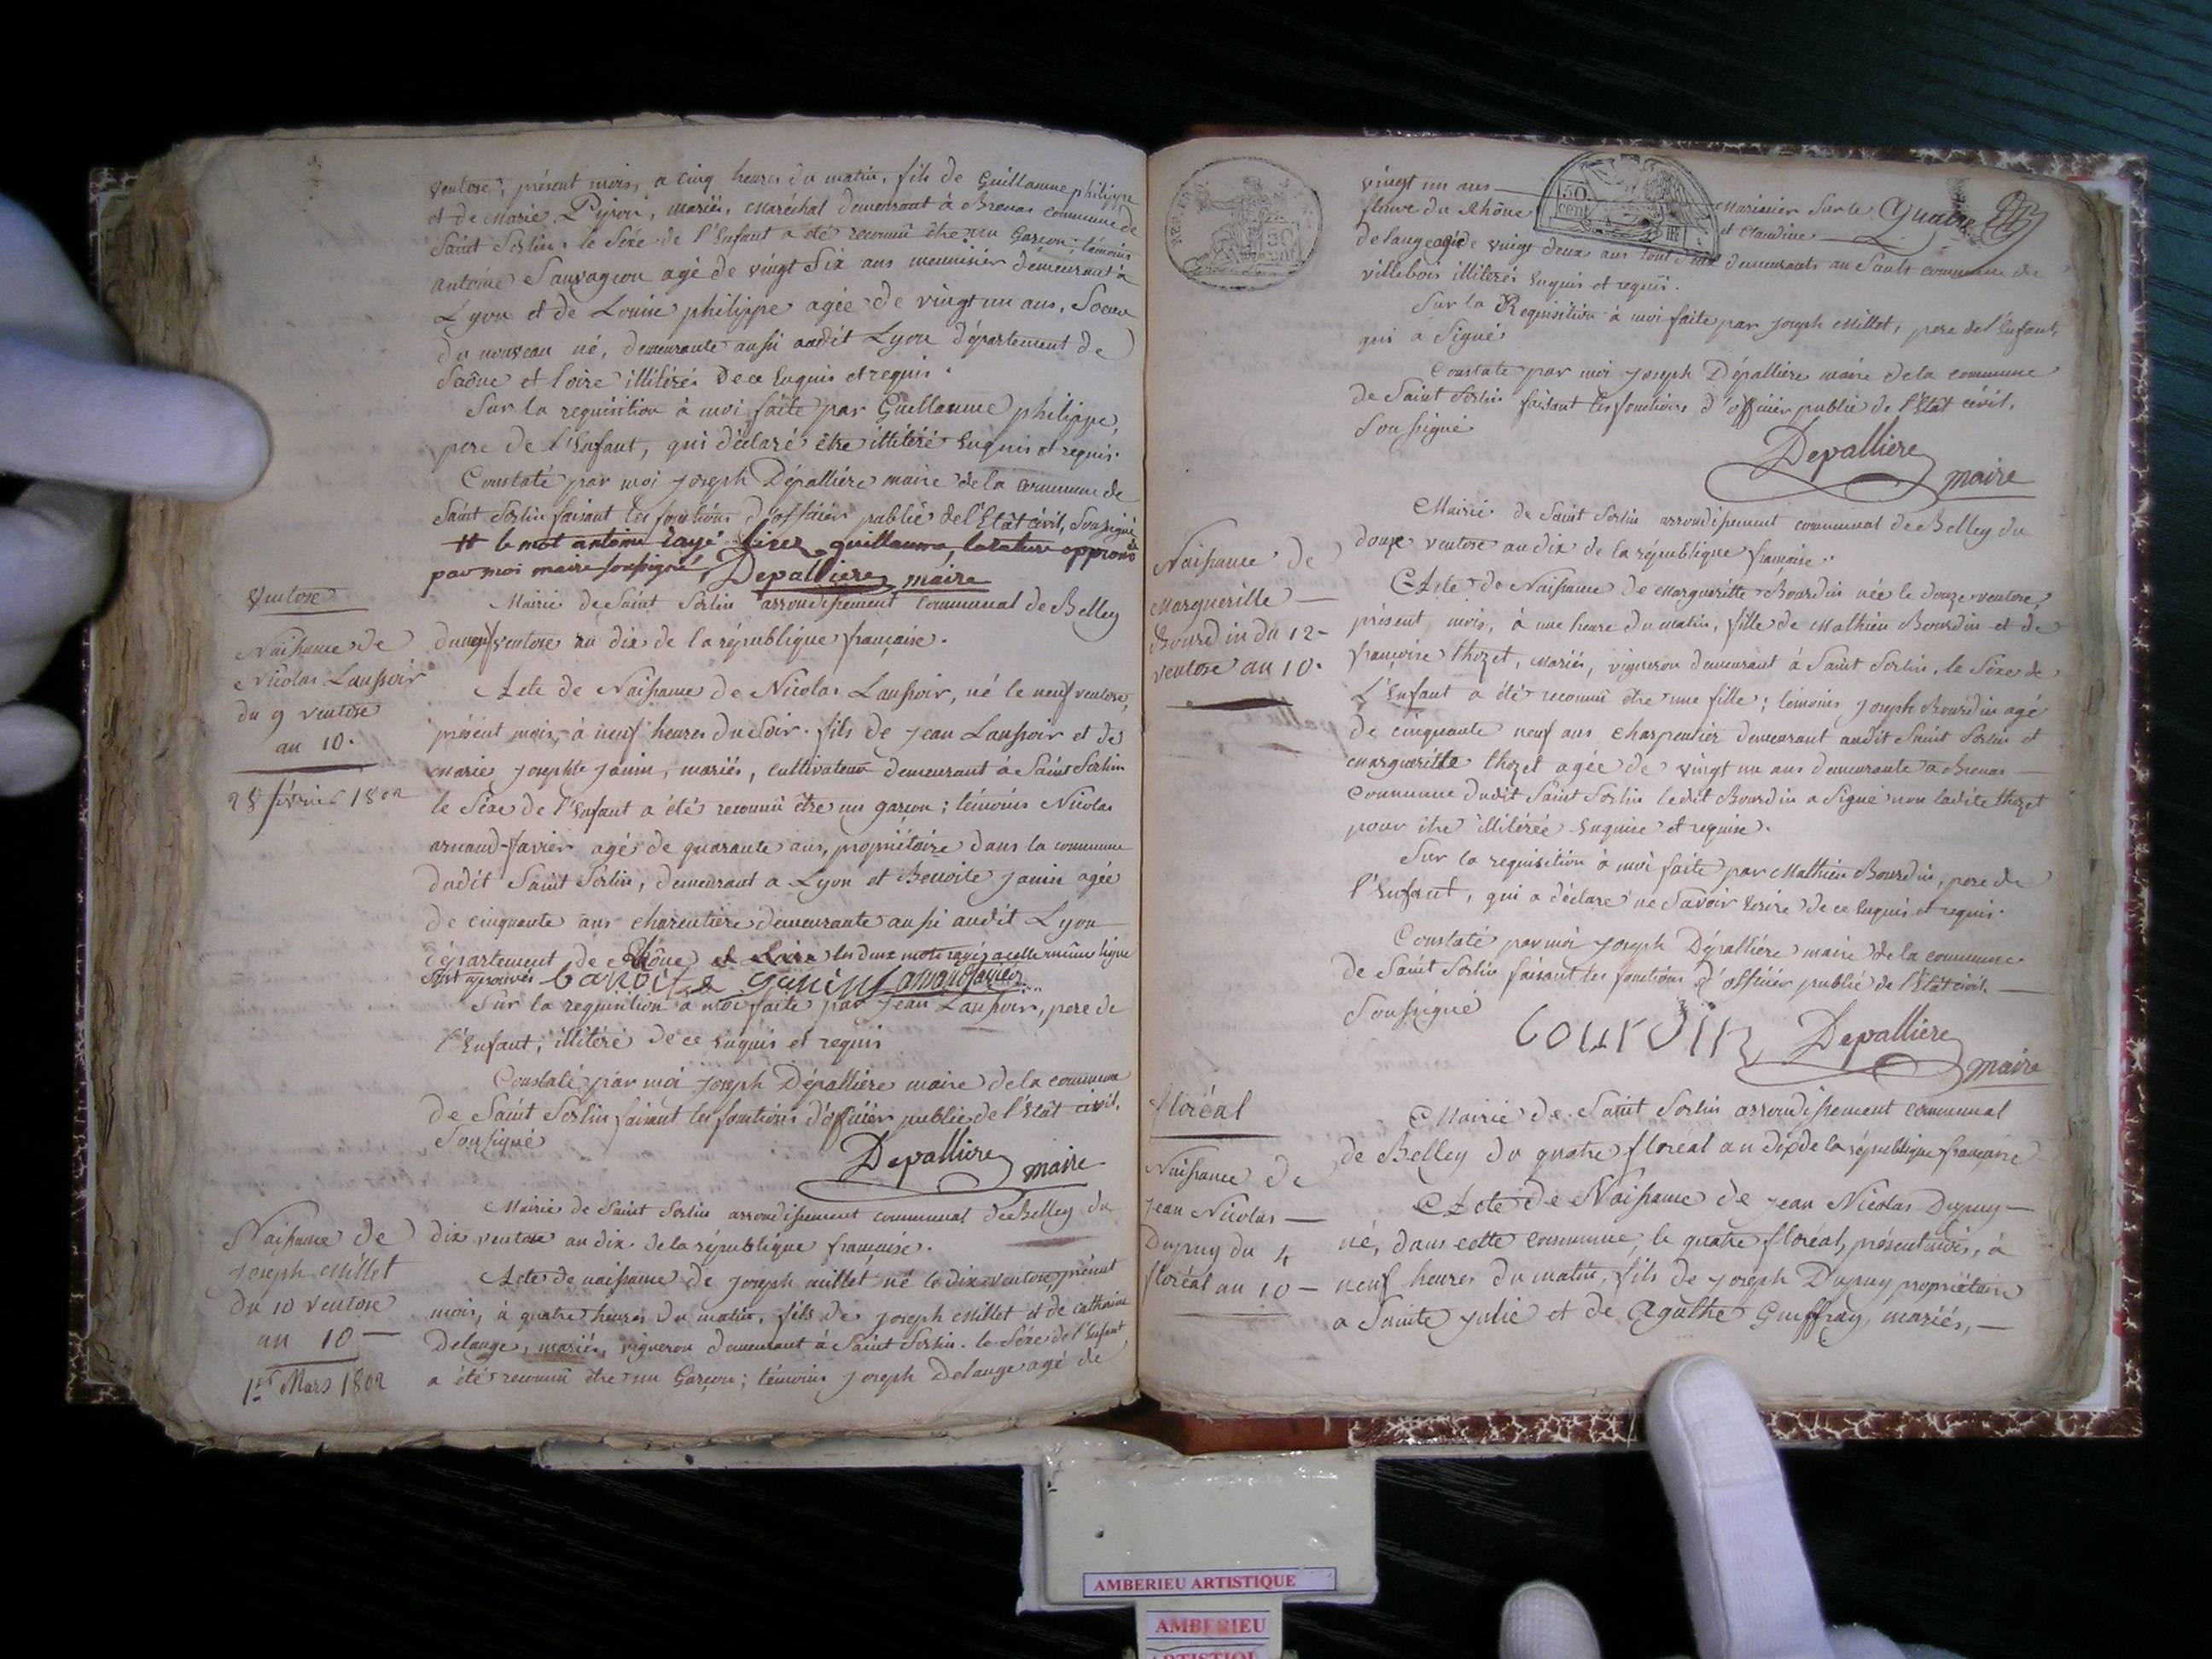 ventose, présent mois, a cinq heures du matin, fils de Guillaume philippe
et de Marie Pijon, mariés, Maréchal demeurant à Brenas commune de
Saint Sorlin. le Séxe de l'Enfant a été reconnû être un Garçon; témoins
antoine Sauvageon agé de vingt Six ans menuisier demeurant à
Lyon et de Louise philippe agée de vingt un ans, Soeur
du nouveau né, demeurante aussi audit Lyon département de
Saône et Loire illitérés de ce Enquis et requis.
Sur la requisition à moi faite par Guillaume philippe,
pere de l'Enfant, qui déclaré être illitéré Enquis et requis.
Constaté par moi Joseph Dépallière maire de la commune de
Saint Sorlin faisant les fonctions d'officier public de l'Etât Civil, Soussigné
# le mot antoine rayé Lisez guillaume, la rature approuvé
par moi maire soussigné, Depalliere maire
Ventose
Mairie de Saint Sorlin arrondissement communal de Belley
du neuf ventose an dix de la république française.
Naissance de
Nicolas Laussoir
du 9 ventose
an 10.
28 février 1802
Acte de Naissance de Nicolas Laussoir, né le neuf ventose,
présent mois, à neuf heures du Soir. fils de Jean Laussoir et de
Marie Josephte Janin, mariés, cultivateur demeurant à Saint Sorlin
le Séxe de l'Enfant a été reconnû être un garçon; témoins Nicolas
arnaud-favier agé de quarante ans, propriétaire dans la commune
dudit Saint Sorlin, demeurant a Lyon et Benoite Janin agée
de cinquante ans charentiere demeurante aussi audit Lyon
département de Rhône et Loire les deux mots rayés a cette même ligne
sont aprouvés banoite ganin arnaud favier
Sur la requisition a moi faite par Jean Laussoir, pere de
l'Enfant, illitéré de ce Enquis et requis
Constaté par moi Joseph Dépallière maire de la commune
de Saint Sorlin faisant les fonctions d'officier public de l'Etât civil.
Soussigné
Depalliere maire
Mairie de Saint Sorlin arrondissement communal de Belley du
dix ventose an dix de la république française.
Naissance de
Joseph Millet
du 10 ventose
an 10
1er Mars 1802
Acte de naissance de Joseph millet né le dix ventose, présent
mois, à quatre heures du matin, fils de Joseph Millet et de catherine
Delange, mariés, vigneron demeurant à Saint Sorlin. le Séxe de l'Enfant
a été reconnû être un Garçon; témoins Joseph Delange agé de
vingt un ans Marinier Sur le Quatre
fleuve du Rhône et Claudine
REP. FRA
50
cent
50
delange agée de vingt deux ans tous deux demeurants au Sault commune de
villebois illiterés Enquis et requis.
Sur la Requisition à moi faite par Joseph Millet, pere de l'Enfant,
qui a Signé
Constaté par moi Joseph Dépallière maire de la commune
de Saint Sorlin faisant les fonctions d'officier public de l'Etât civil,
Soussigné
Depalliere
maire
Mairie de Saint Sorlin arrondissement communal de Belley du
douze ventose an dix de la république française.
Naissance de
Marguerite
Bourdin du 12
ventose an 10.
Acte de Naissance de Margueritte Bourdin née le douze ventose,
présent mois, à une heure du matin, fille de Mathieu Bourdin et de
françoise thozet, mariés, vigneron demeurant à Saint Sorlin, le Séxe de
L'Enfant a été reconnû être une fille; témoins Joseph Bourdin agé
de cinquante neuf ans charpentier demeurant audit Saint Sorlin et
margueritte thozet agée de vingt un ans demeurante a Brenas
Commune dudit Saint Sorlin ledit Bourdin a Signé non ladite thozet
pour être illitérée Enquise et requise.
Sur la requisition à moi faite par Mathieu Bourdin, pere de
l'Enfant, qui a déclaré ne Savoir Ecrire de ce Enquis et requis.
Constaté par moi Joseph Dépallière maire de la commune
de Saint Sorlin faisant les fonctions d'officier public de l'Etât civil.
Soussigné
bourdin Depalliere
maire
floréal
Mairie de Saint Sorlin arrondissement communal
de Belley du quatre floréal an dix de la république française
Naissance de
Jean Nicolas
Dupuy du 4
floréal an 10
Acte de Naissance de Jean Nicolas Dupuy
né, dans cette commune, le quatre floréal, présent mois, à
neuf heures du matin, fils de Joseph Dupuy propriétaire
a Sainte Julie et de Agathe Guiffray, mariés,
AMBERIEU ARTISTIQUE
AMBERIEU
ARTISTIQUE